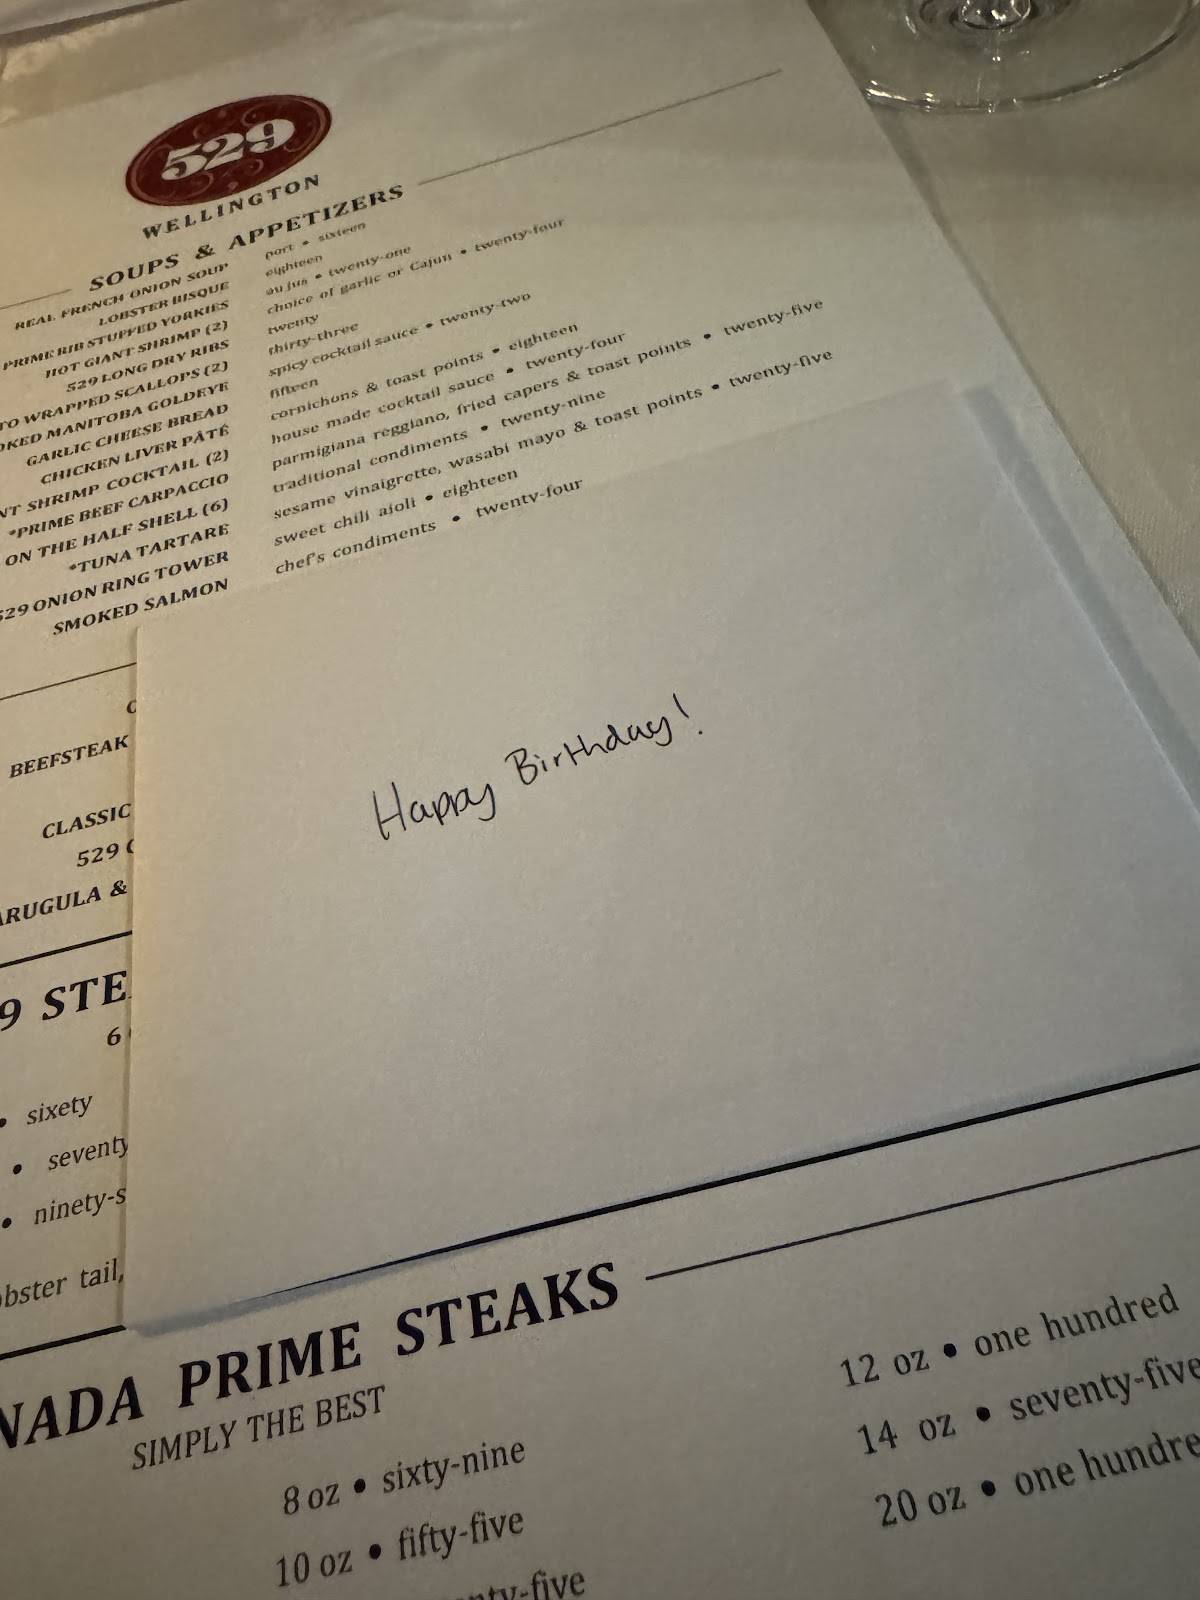 529
WELLINGTON
SOUPS & APPETIZERS
REAL FRENCH ONION SOUP port • sixteen
LOBSTER BISQUE eighteen
PRIME RIB STUFFED YORKIES au jus • twenty-one
HOT GIANT SHRIMP (2) choice of garlic or Cajun • twenty-four
529 LONG DRY RIBS twenty
TO WRAPPED SCALLOPS (2) thirty-three
OKED MANITOBA GOLDEYE spicy cocktail sauce • twenty-two
GARLIC CHEESE BREAD fifteen
CHICKEN LIVER PÂTÉ cornichons & toast points • eighteen
NT SHRIMP COCKTAIL (2) house made cocktail sauce • twenty-four
*PRIME BEEF CARPACCIO parmigiana reggiano, fried capers & toast points • twenty-five
ON THE HALF SHELL (6) traditional condiments • twenty-nine
*TUNA TARTARE sesame vinaigrette, wasabi mayo & toast points • twenty-five
529 ONION RING TOWER sweet chili aioli • eighteen
SMOKED SALMON chef's condiments • twenty-four
BEEFSTEAK
CLASSIC
529
ARUGULA &
Happy Birthday!
9 STE
6
• sixety
• seventy
• ninety-s
obster tail,
NADA PRIME STEAKS
SIMPLY THE BEST
8 oz • sixty-nine
10 oz • fifty-five
nty-five
12 oz • one hundred
14 oz • seventy-five
20 oz • one hundre